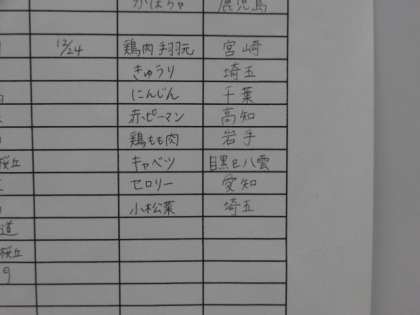 かぼちゃ 鹿児島
12/24 鶏肉 宮崎
きゅうり 埼玉
にんじん 千葉
赤ピーマン 高知
鶏もも肉 岩手
桜丘 キャベツ 目黒区八雲
セロリー 愛知
小松菜 埼玉
道
桜丘
9